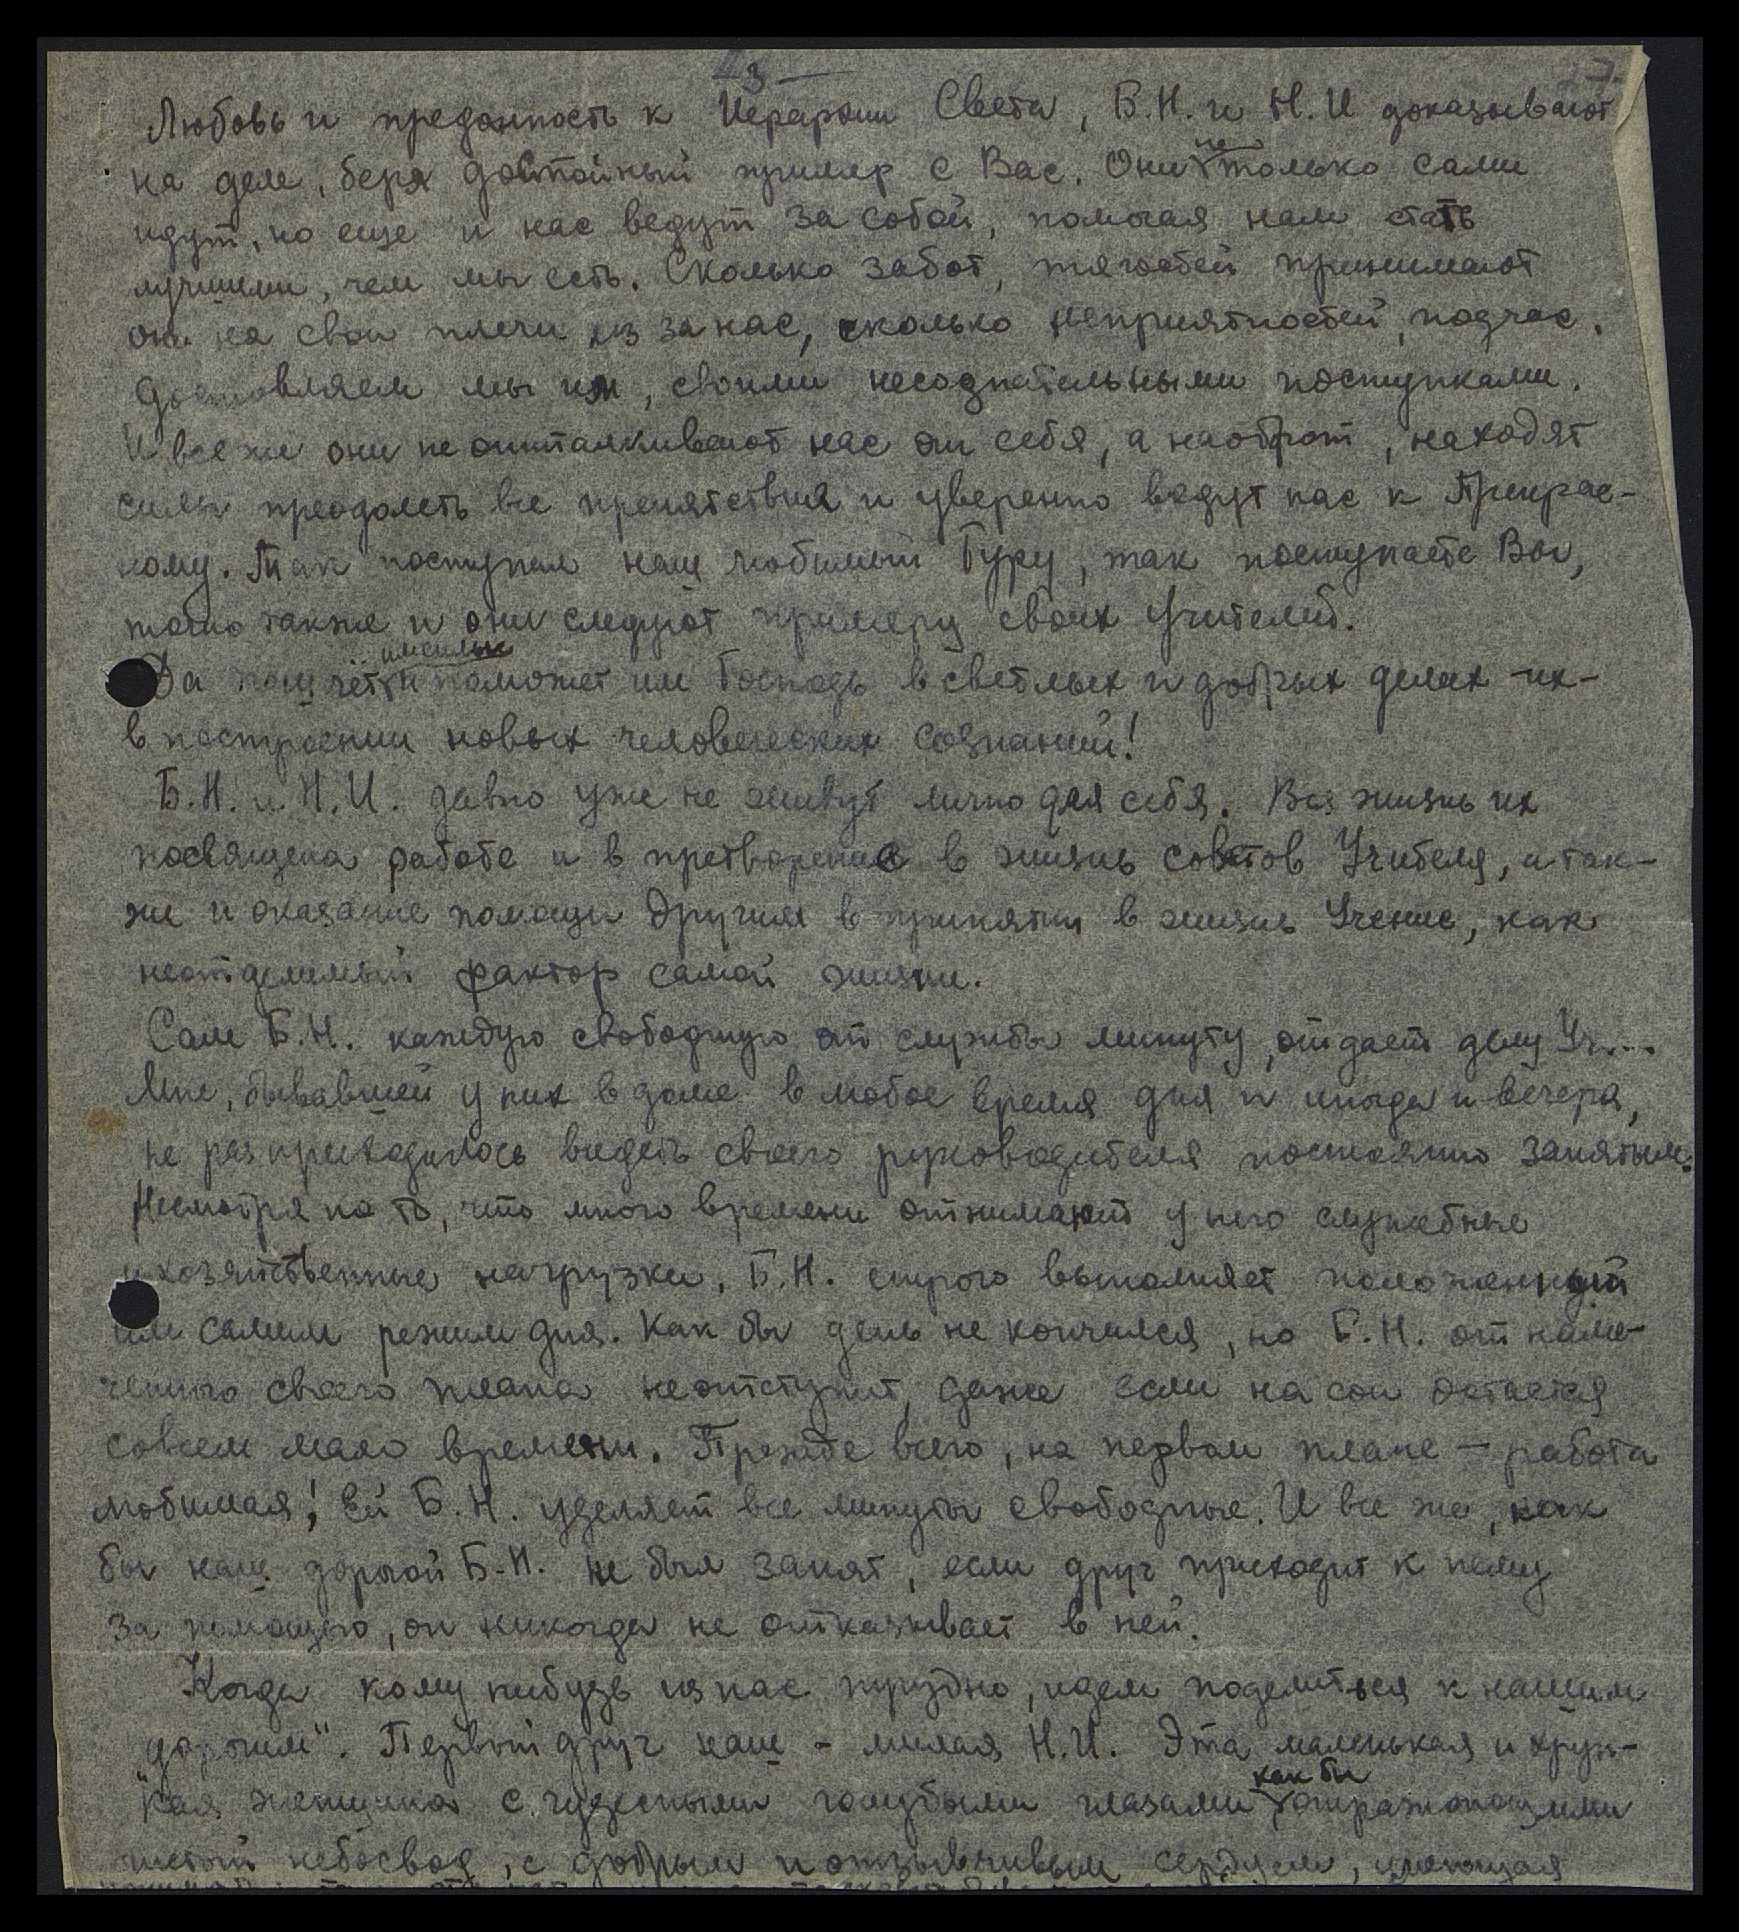 3
27
Любовь и преданность к Иерархии Света, Б.Н. и Н.И доказывают
на деле, беря достойный пример с Вас. Они не только сами
идут, но еще и нас ведут за собой, помогая нам стать
лучшими, чем мы есть. Сколько забот, тягостей принимают
они на свои плечи из за нас, сколько неприятностей, подчас,
доставляем мы им, своими несознательными поступками.
И все же они не отталкивают нас от себя, а наоброт, находят
силы преодолеть все препятствия и уверенно ведут нас к Прекрас-
ному. Так поступал наш любимый Гуру, так поступаете Вы,
точно также и они следуют примеру своих Учителей.
Да пошлёт им силы и поможет им Господь в светлых и добрых делах -их-
в построении новых человеческих сознаний!
Б.Н. и Н.И. давно уже не живут лично для себя. Вся жизнь их
посвящена работе и в претворение в жизнь советов Учителя, а так-
же и оказание помощи другим в принятии в жизнь Учение, как
неотделимый фактор самой жизни.
Сам Б.Н. каждую свободную от службы минуту, отдает делу Уч....
Мне, бывавшей у них в доме в любое время дня и иногда и вечера,
не раз приходилось видеть своего руководителя постоянно занятым.
Несмотря на то, что много времени отнимают у него служебные
и хозяйственные нагрузки, Б.Н. строго выполняет положенный
им самим режим дня. Как бы день не кончился, но Б.Н. от наме-
ченного своего плана не отступит, даже если на сон остается
совсем мало времени. Прежде всего, на первом плане - работа
любимая! Ей Б.Н. уделяет все минуты свободные. И все же, как
бы наш дорогой Б.Н. не был занят, если друг приходит к нему
за помощью, он никогда не отказывает в ней.
Когда кому нибудь из нас трудно, идем поделиться к нашим
"дорогим". Первый друг наш - милая Н.И. Эта маленькая и хруп-
кая женщина с чудесными голубыми глазами как бы отражающими
чистый небосвод, с добрым и отзывчивым сердцем, умеющая